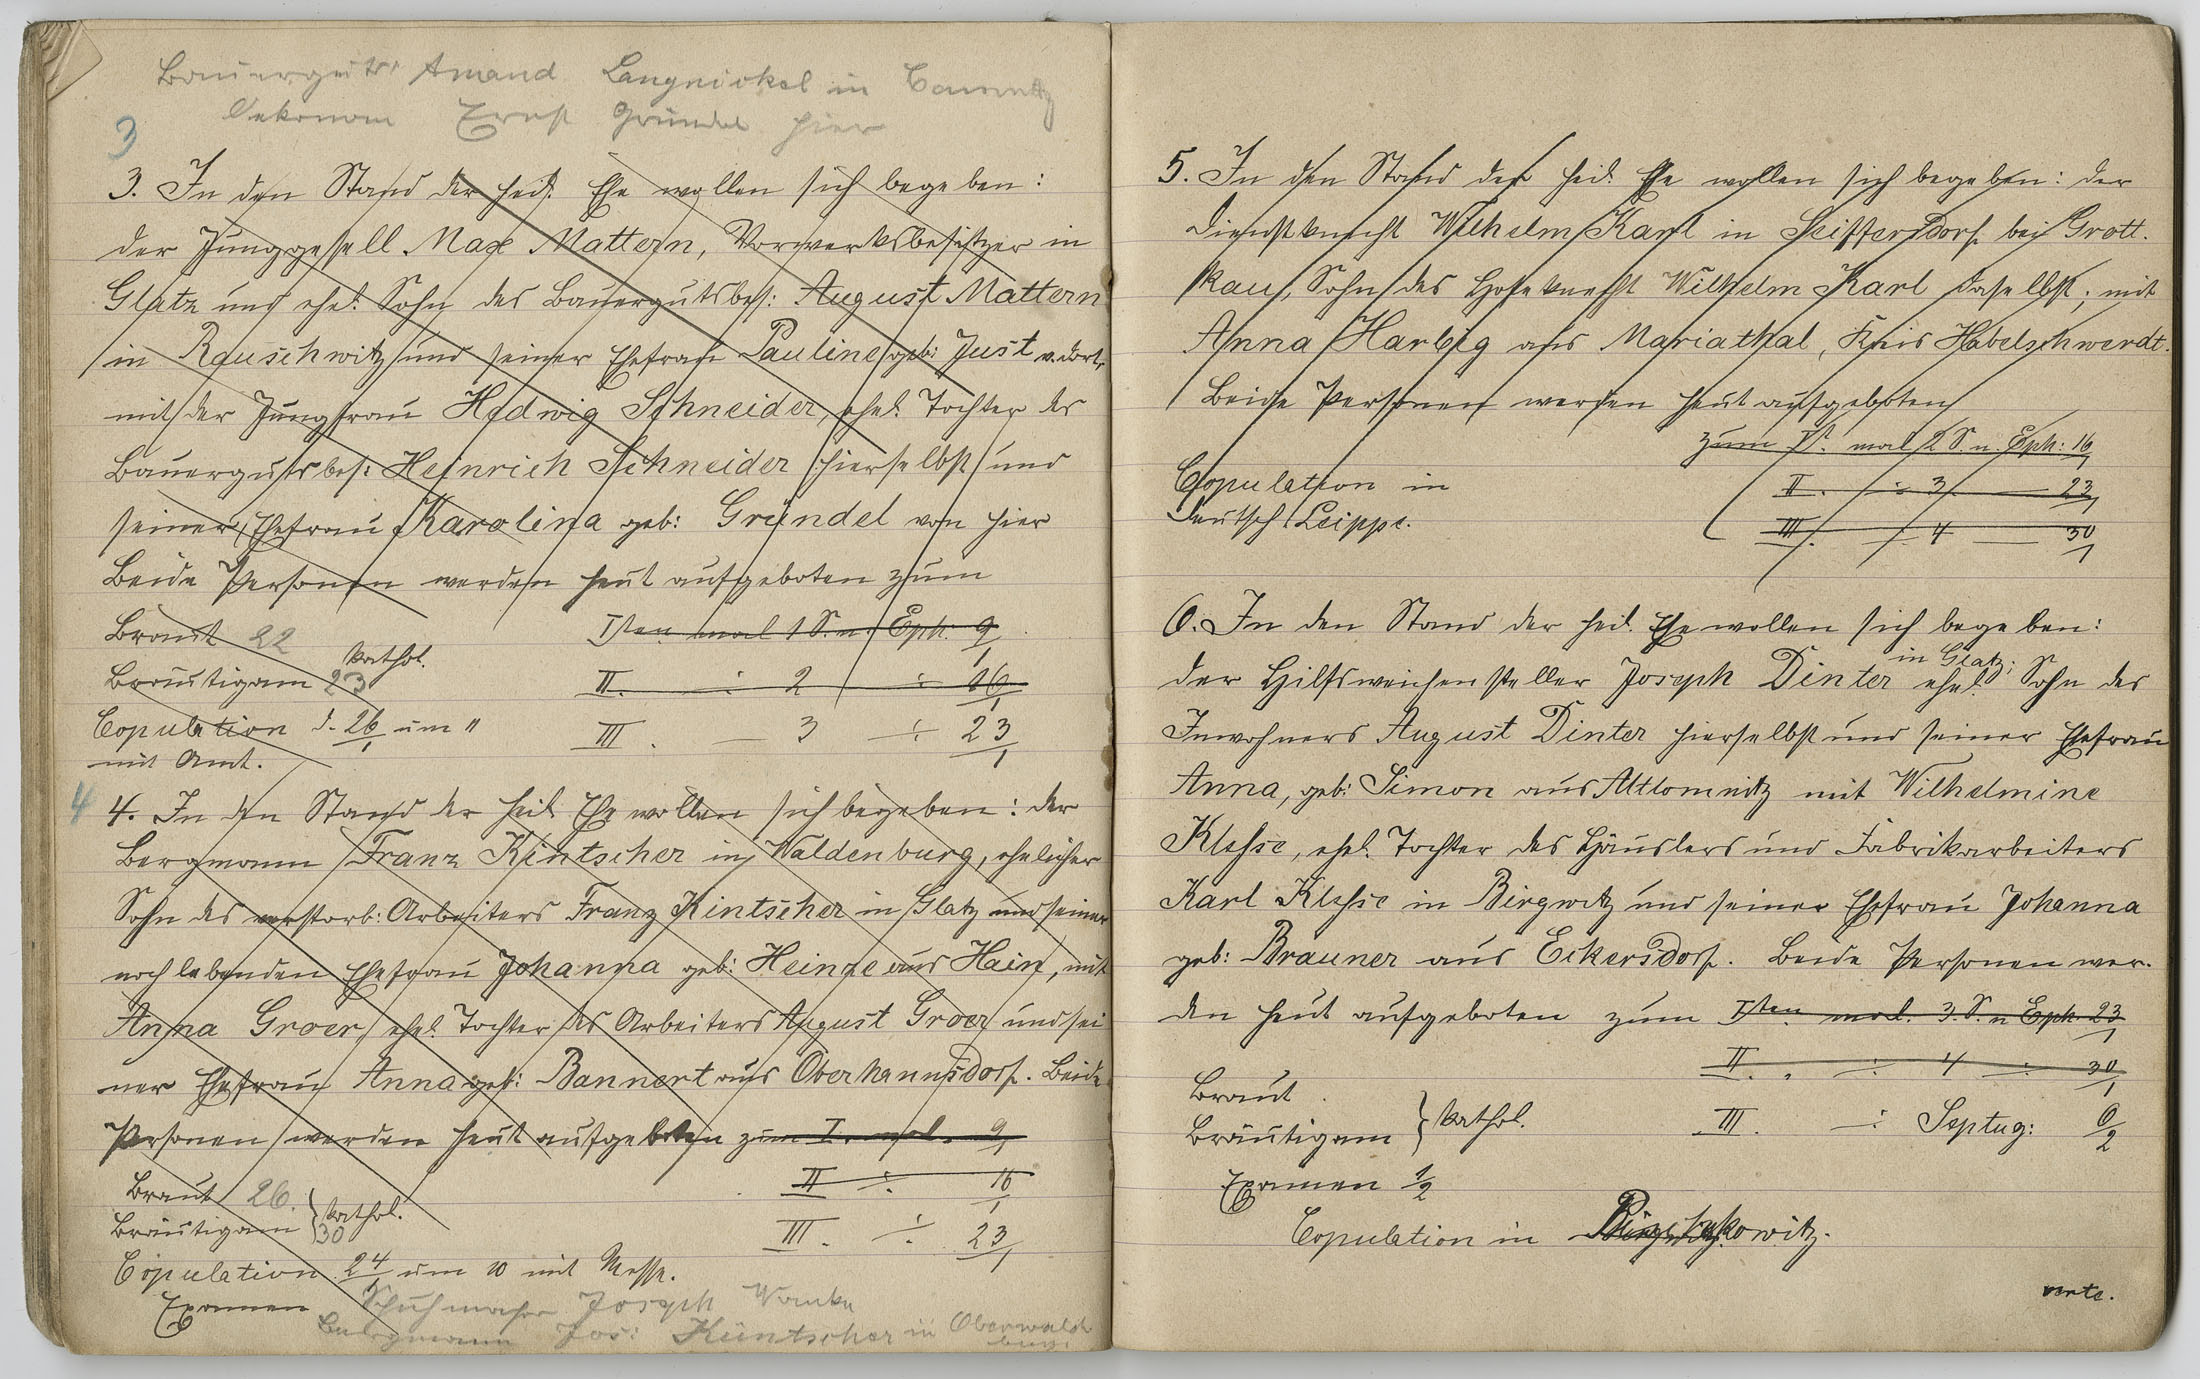 Bauerguts Amand Langnickel in
Oekonom Ernst Gründel hier
3
3. In den Stand der heil. Ehe wollen sich begeben:
der Junggesell Max Mattern, Vorwerksbesitzer in
Glatz und ehel. Sohn des Bauergutsbes: August Mattern
in Rauschwitz und seiner Ehefrau Pauline geb: Just v. dort,
mit der Jungfrau Hedwig Schneider, ehel. Tochter des
Bauergutsbes: Heinrich Schneider hierselbst und
seiner Ehefrau Karolina geb: Gründel von hier
Beide Personen werden heut aufgeboten zum
Braut 22
Isten mal 1 S. n. Eph. 9/1
kathol.
Bräutigam 23
II. ÷ 2 ÷ 16/1
Copulation d. 26/1 um "
III. — 3 ÷ 23/1
mit Amt.
4
4. In den Stand der heil. Ehe wollen sich begeben: der
Bergmann Franz Kintscher in Waldenburg, ehelicher
Sohn des verstorb: Arbeiters Franz Kintscher in Glatz und seiner
noch lebenden Ehefrau Johanna geb: Heinze aus Hain, mit
Anna Groer, ehel. Tochter des Arbeiters August Groer und sei
ner Ehefrau Anna geb: Bannert aus Oberhannsdorf. Beide
Personen werden heut aufgeboten zum I. mal. 9/1
II ÷ 16/1
Braut 26.
Bräutigam 30 } kathol.
III. ÷ 23/1
Copulation 24/1 um 10 mit Messe.
Examen Schuhmacher Joseph
Bergmann Jos: Küntscher in Oberwalden
burg.
5. In den Stand der heil. Ehe wollen sich begeben: der
Dienstknecht Wilhelm Karl in Seiffersdorf bei Grott-
kau, Sohn des Hofeknecht Wilhelm Karl daselbst; mit
Anna Harbig aus Mariathal, Kreis Habelschwerdt.
Beide Personen werden heut aufgeboten
zum Ist. mal 2 S. n. Eph: 16/1
Copulation in
II. ÷ 3. — 23/1
Deutsch Leippe.
III. — 4 — 30/1
6. In den Stand der heil. Ehe wollen sich begeben:
in Glatz;
der Hilfsweichensteller Joseph Dinter ehel. Sohn des
Inwohners August Dinter hierselbst und seiner Ehefrau
Anna, geb: Simon aus Altlomnitz mit Wilhelmine
Klehse, ehel. Tochter des Häuslers und Fabrikarbeiters
Karl Klehse in Birgwitz und seiner Ehefrau Johanna
geb: Brauner aus Eckersdorf. Beide Personen wer-
den heut aufgeboten zum Isten mal. 3. S. n Eph. 23/1
II. " ÷ 4 ÷ 30/1
Braut
Bräutigam } kathol.
III. ÷ Septug: 6/2
Examen 1/2
Copulation in
verte.